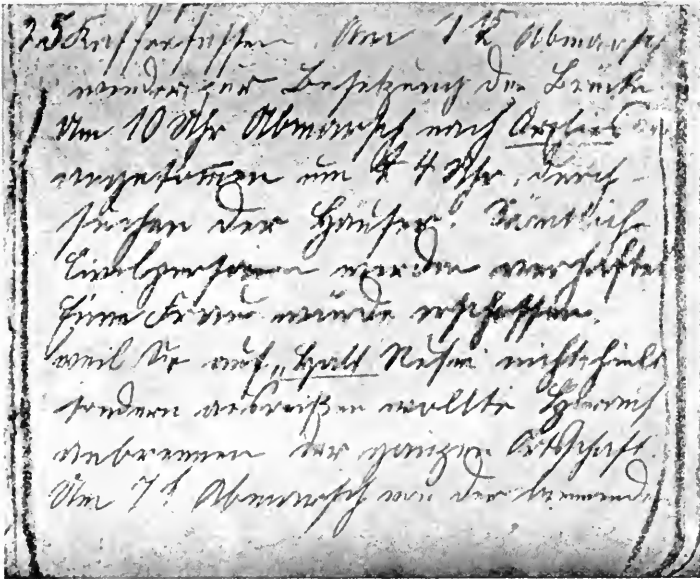 25 Kaffeefassen. Um Abmarsch
wieder zur Besetzung der Brücke
Um 10 Uhr Abmarsch nach
angekommen um 4 Uhr. Durch-
suchen der Häuser. Sämtliche
Civilpersonen werden verhaftet
Eine Frau wurde erschossen,
weil Sie auf „Halt Rufen nicht hielt
sondern ausreißen wollte Hierauf
anbrennen der ganzen Ortschaft.
Um 7h Abmarsch von der